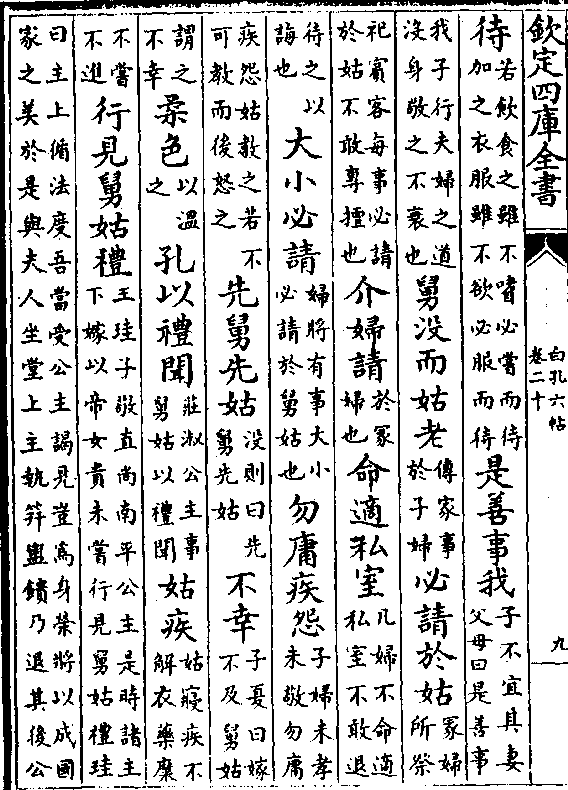 欽定四庫全書
白孔六帖
卷二十
九
待若飲食之雖不嗜必嘗而待加之衣服雖不欲必服而待是善事我子不宜其妻父母曰是善事
我子行夫婦之道沒身敬之不衰也舅没而姑老傳家事於子婦必請於姑冢婦所祭
祀賓客每事必請於姑不敢專擅也介婦請於冢婦也命適私室凡婦不命適私室不敢退
待之以誨也大小必請婦將有事大小必請於舅姑也勿庸疾怨子婦未孝未敬勿庸
疾怨姑教之若不可教而後怒之先舅先姑没則曰先舅先姑不幸子憂曰嫁不及舅姑
謂之不幸柔色以溫之孔以禮聞莊淑公主事舅姑以禮聞姑疾姑寢疾不解衣藥糜
不嘗不進行見舅姑禮王珪子敬直尚南平公主是時諸主下嫁以帝女貴未嘗行見舅姑禮珪
曰主上循法度吾當受公主謁見豈為身榮將以成國家之美於是與夫人坐堂上主執笲盥饋乃退其後公